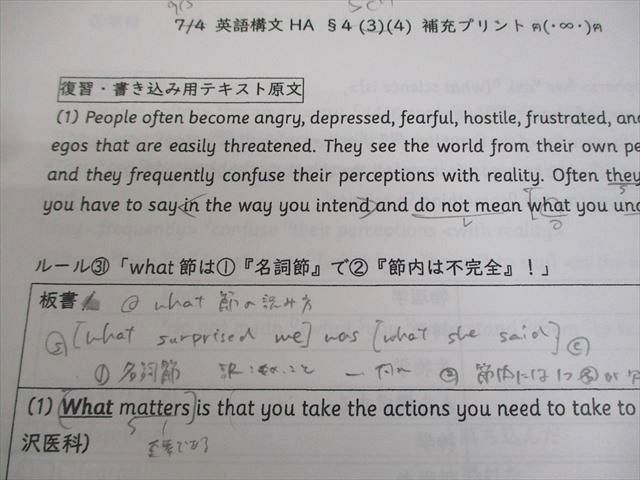 7/4 英語構文 HA §4 (3)(4) 補充プリント ฅ(・∞・)ฅ
復習・書き込み用テキスト原文
(1) People often become angry, depressed, fearful, hostile, frustrated, and
egos that are easily threatened. They see the world from their own pe
and they frequently confuse their perceptions with reality. Often they
you have to say in the way you intend and do not mean what you und
ルール㉛「what 節は①『名詞節』で②『節内は不完全』！」
板書 what 節の読み方
[what surprised me] was [what she said]
① 名詞節 訳：もの、こと 何 ② 節内には
(1) What matters is that you take the actions you need to take to
沢医科)
重要である